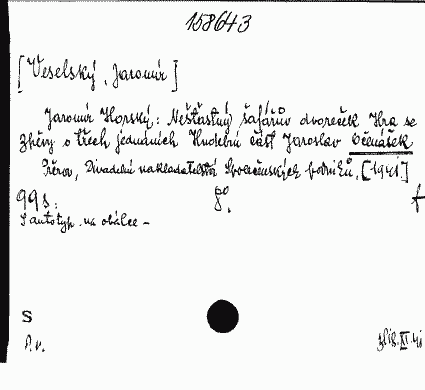 158643
[Veselský, Jaromír]
Jaromír Horský: Nešťastný šafářův dvoreček Hra se
zpěvy o třech jednáních Hudební část Jaroslav Očenášek
Přerov, Divadelní nakladatelství Společenských podniků, [1941]
99 s. 8°. f
S autotyp. na obálce –
S
P.v.
XI.41